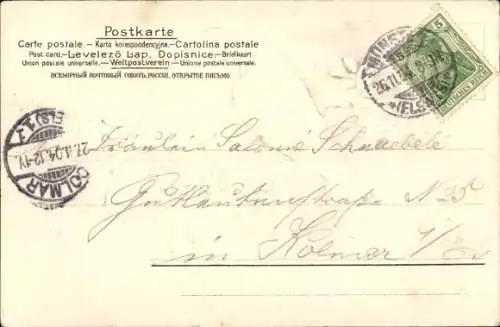 Postkarte
Carte postale. – Karta korespondencyjna. – Cartolina postale
Post card. – Levelező Lap. Dopisnice. – Briefkaart
Union postale universelle. – Weltpostverein – Unione postale universale.
ВСЕМІРНЫЙ ПОЧТОВЫЙ СОЮЗЪ. РОССІЯ. ОТКРЫТОЕ ПИСЬМО.
5
MÜNST
26.11.
(ELS
COLMAR
27.11.04.12-1V.
(ELS) 1.
Fräulein Salomé Schnaebele
in Kolmar